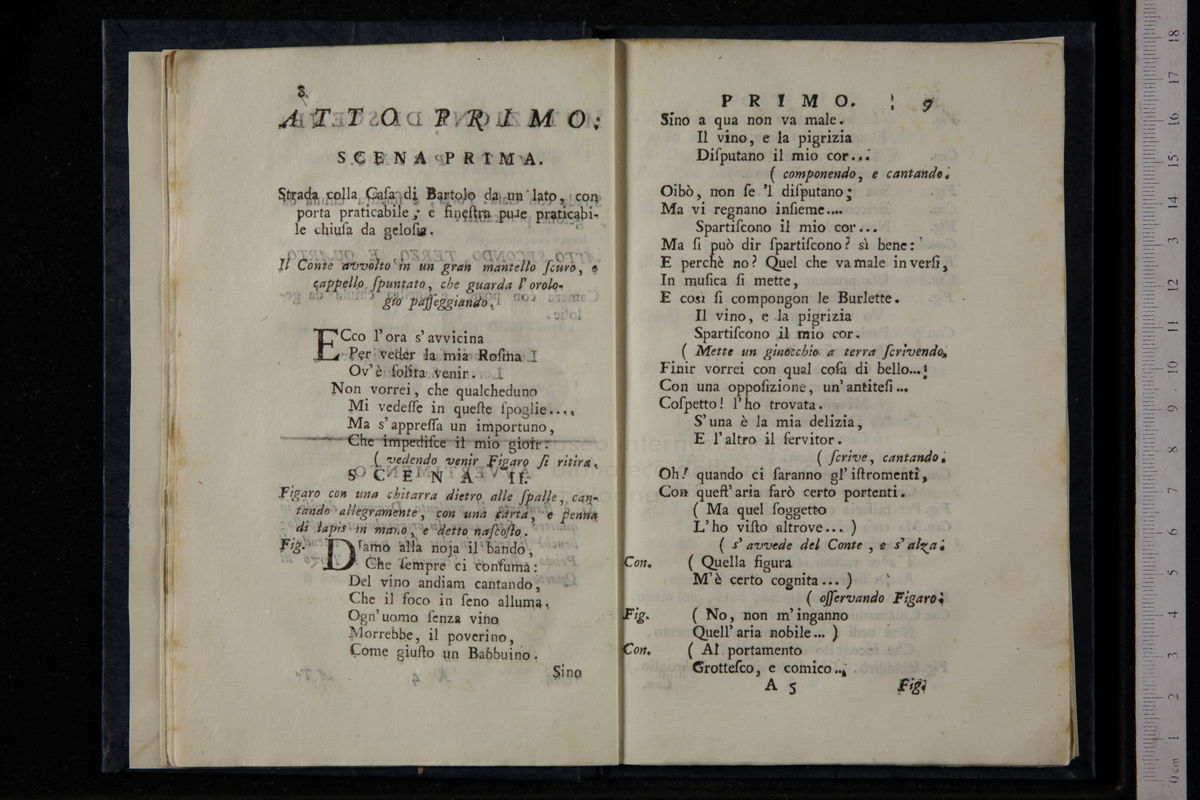 8
ATTO PRIMO.
SCENA PRIMA.
Strada colla Caſa di Bartolo da un lato, con
porta praticabile, e fineſtra pure praticabi-
le chiuſa da geloſia.
Il Conte avvolto in un gran mantello ſcuro, e
cappello ſpuntato, che guarda l'orolo-
gio paſſeggiando.
ECco l'ora s'avvicina
Per veder la mia Roſina
Ov'è ſolita venir.
Non vorrei, che qualcheduno
Mi vedeſſe in queſte ſpoglie....
Ma s'appreſſa un importuno,
Che impediſce il mio gioir:
( vedendo venir Figaro ſi ritira.
SCENA II.
Figaro con una chitarra dietro alle ſpalle, can-
tando allegramente, con una carta, e penna
di lapis in mano, e detto naſcoſto.
Fig. Diamo alla noja il bando,
Che ſempre ci conſuma:
Del vino andiam cantando,
Che il foco in ſeno alluma,
Ogn'uomo ſenza vino
Morrebbe, il poverino,
Come giuſto un Babbuino.
Sino
PRIMO. 9
Sino a qua non va male.
Il vino, e la pigrizia
Diſputano il mio cor...
( componendo, e cantando.
Oibò, non ſe 'l diſputano;
Ma vi regnano inſieme....
Spartiſcono il mio cor...
Ma ſi può dir ſpartiſcono? sì bene:
E perchè no? Quel che va male in verſi,
In muſica ſi mette,
E così ſi compongon le Burlette.
Il vino, e la pigrizia
Spartiſcono il mio cor.
( Mette un ginocchio a terra ſcrivendo.
Finir vorrei con qual coſa di bello...!
Con una oppoſizione, un'antiteſi...
Coſpetto! l'ho trovata.
S'una è la mia delizia,
E l'altro il ſervitor.
( ſcrive, cantando.
Oh! quando ci ſaranno gl'iſtromenti,
Con queſt'aria farò certo portenti.
( Ma quel ſoggetto
L'ho viſto altrove... )
( s'avvede del Conte, e s'alza.
Con. ( Quella figura
M'è certo cognita... )
( oſſervando Figaro.
Fig. ( No, non m'inganno
Quell'aria nobile... )
Con. ( Al portamento
Grotteſco, e comico...
A 5 Fig.